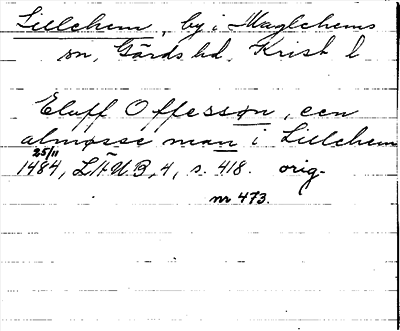 Lillehem, by i Maglehems
sn, Gärds hd, Krist l
Eluff Offesson, een
almosse man i Lillehem
25/11
1484, LÄUB, 4, s. 418. orig.
nr 473.